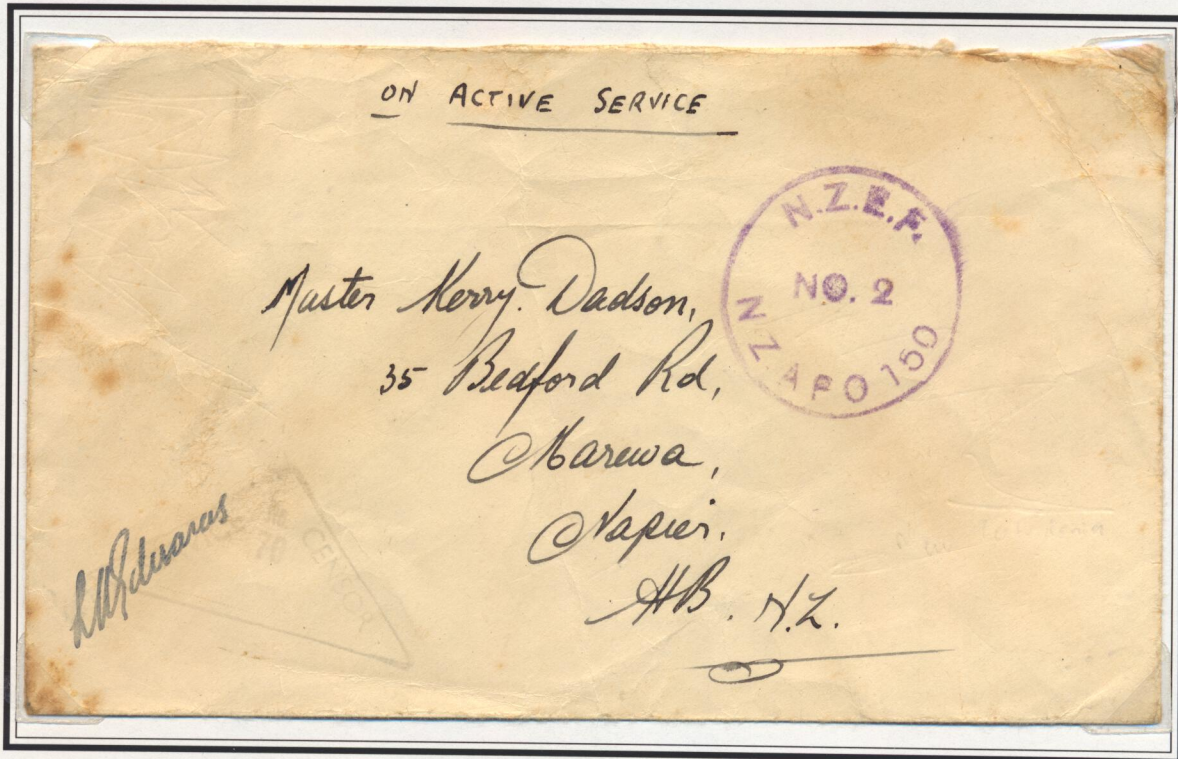 ON ACTIVE SERVICE
N.Z.E.F.
NO. 2
N.Z. APO 150
Master Kerry. Dadson,
35 Bedford Rd,
Marewa,
Napier.
HB. N.Z.
CENSOR